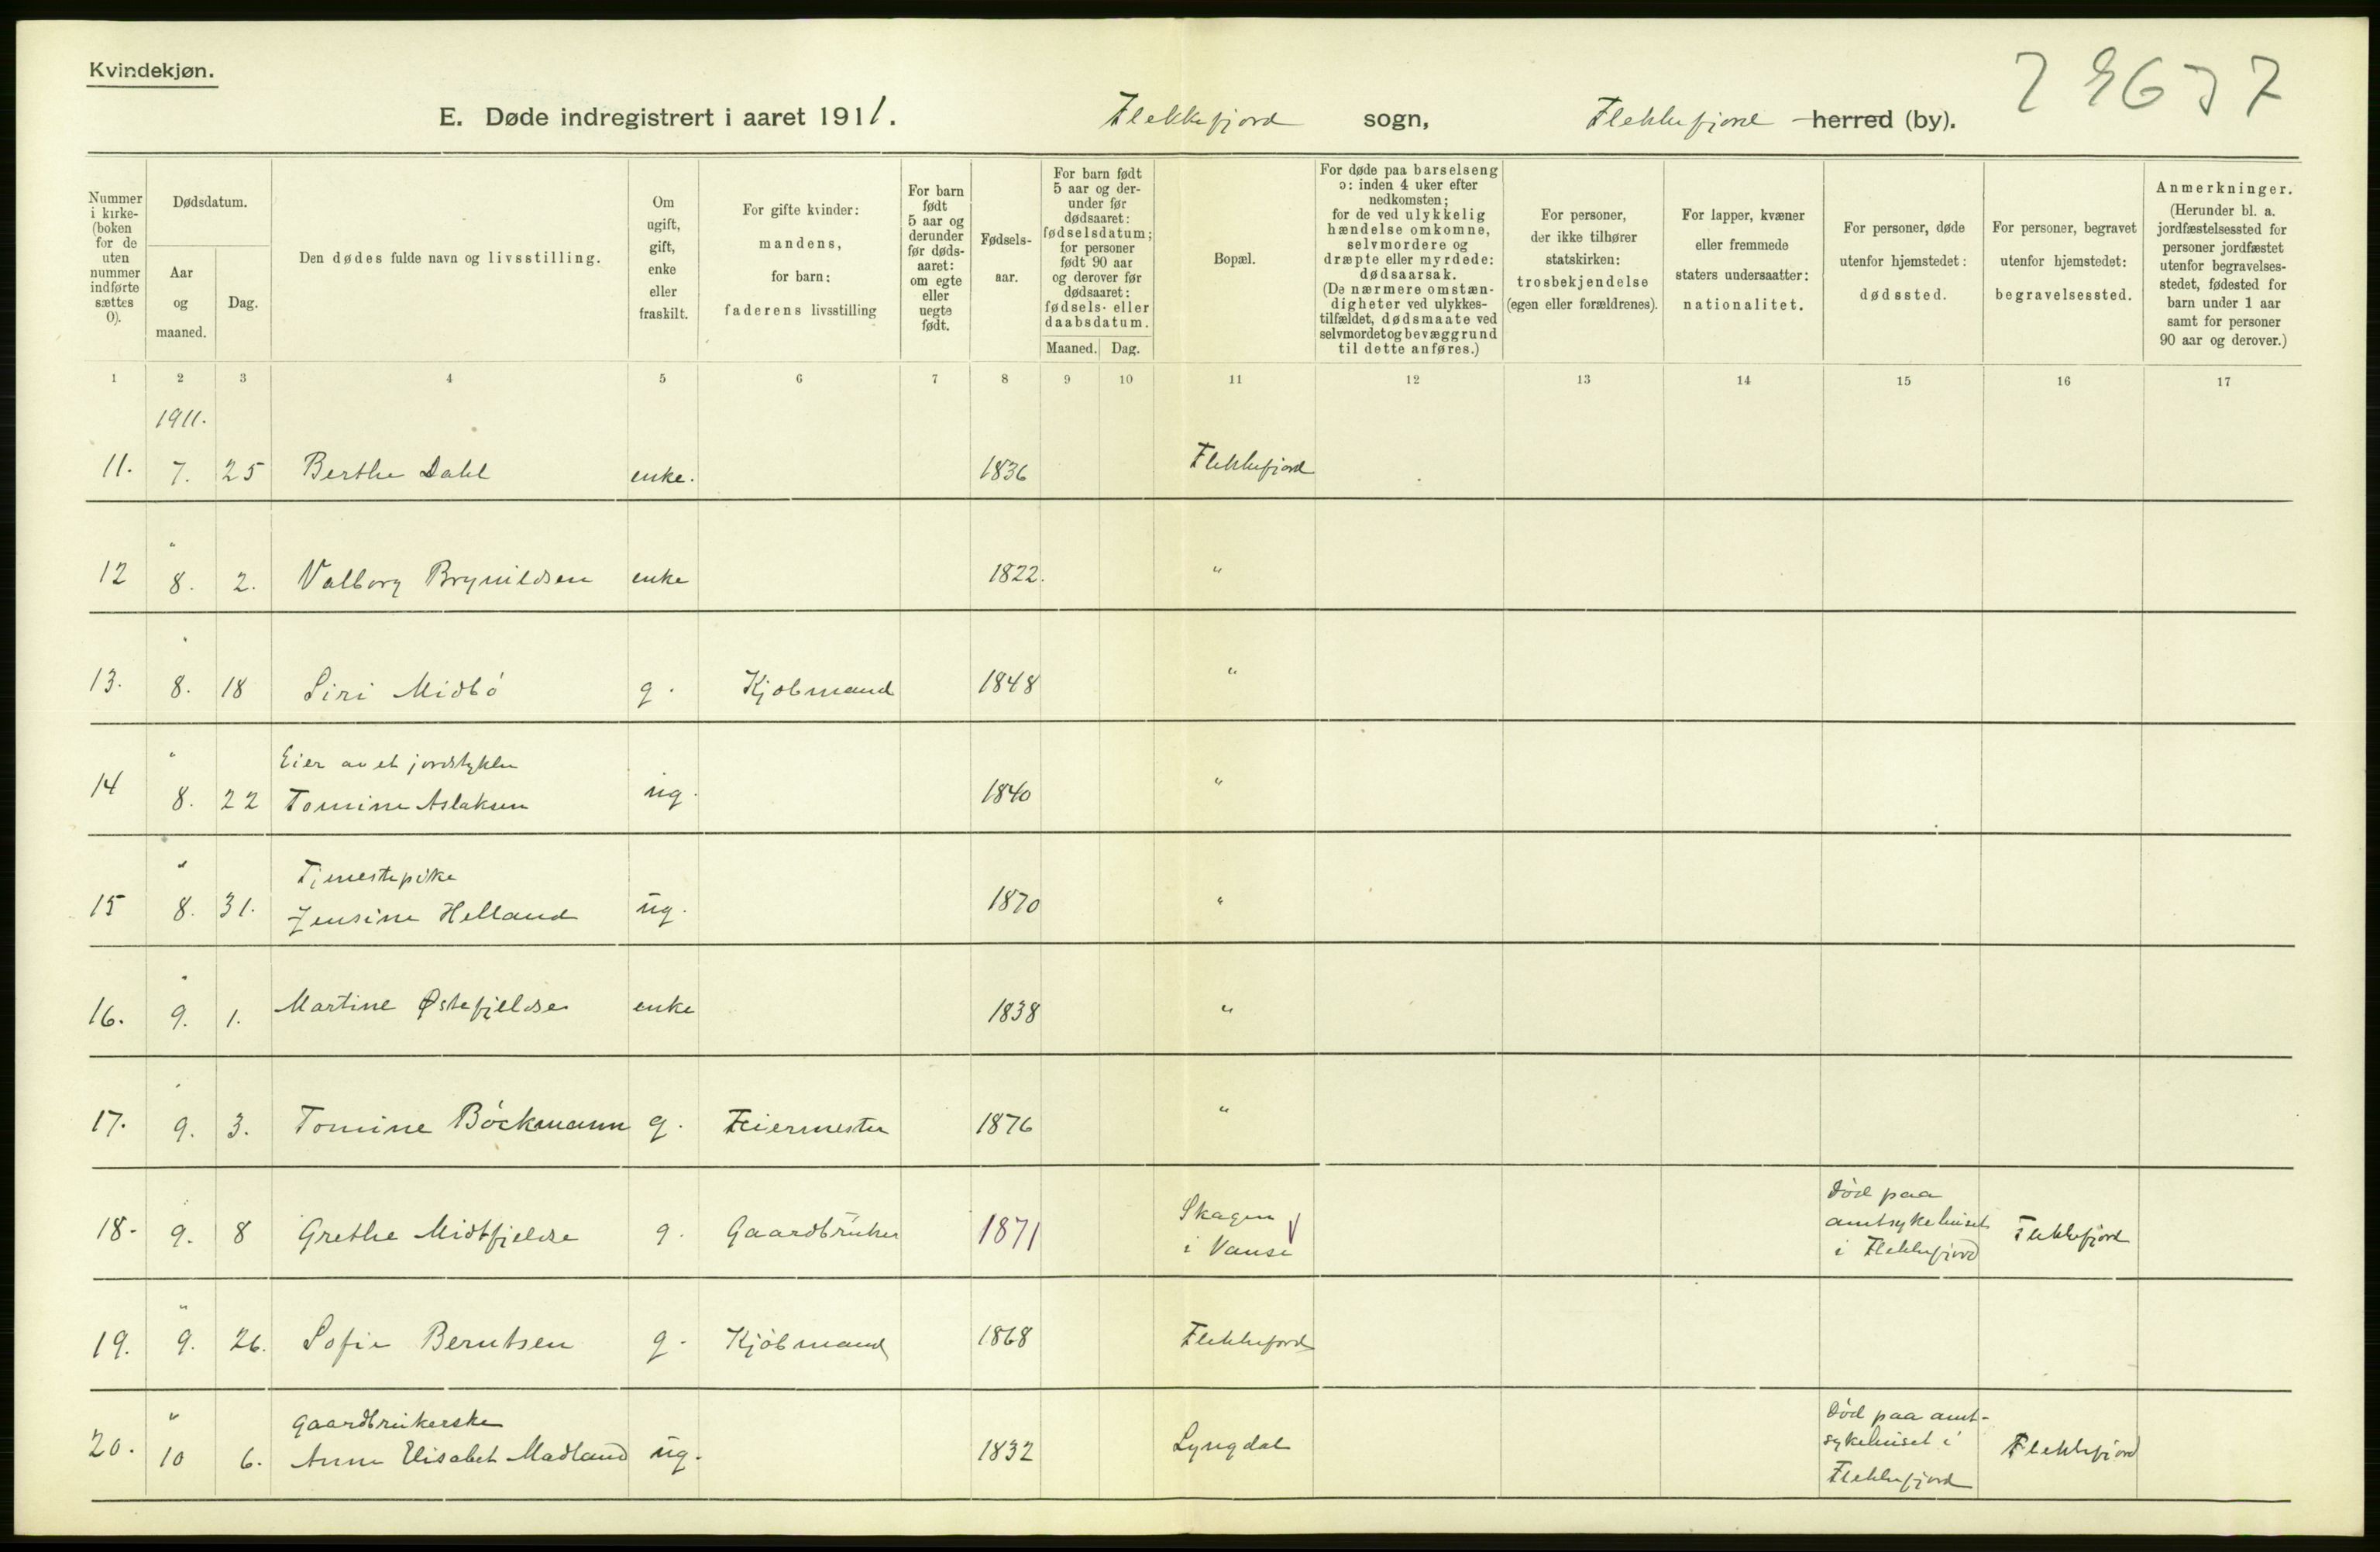 Kvindekjøn.
7 9637
E. Døde indregistrert i aaret 1911. Flekkefjord sogn, Flekkefjord herred (by).
Nummer i kirke-(boken for de uten nummer indførte sættes 0).
Dødsdatum.
Aar og maaned.
Dag.
Den dødes fulde navn og livsstilling.
Om ugift, gift, enke eller fraskilt.
For gifte kvinder: mandens, for barn: faderens livsstilling
For barn født 5 aar og derunder før døds-aaret: om egte eller uegte født.
Fødsels-aar.
For barn født 5 aar og der-under før dødsaaret: fødselsdatum; for personer født 90 aar og derover før dødsaaret: fødsels- eller daabsdatum.
Maaned. Dag.
Bopæl.
For døde paa barselseng ɔ: inden 4 uker efter nedkomsten; for de ved ulykkelig hændelse omkomne, selvmordere og dræpte eller myrdede: dødsaarsak. (De nærmere omstæn-digheter ved ulykkes-tilfældet, dødsmaate ved selvmordet og bevæggrund til dette anføres.)
For personer, der ikke tilhører statskirken: trosbekjendelse (egen eller forældrenes).
For lapper, kvæner eller fremmede staters undersaatter: nationalitet.
For personer, døde utenfor hjemstedet: dødssted.
For personer, begravet utenfor hjemstedet: begravelsessted.
Anmerkninger. (Herunder bl. a. jordfæstelsessted for personer jordfæstet utenfor begravelses-stedet, fødested for barn under 1 aar samt for personer 90 aar og derover.)
1 2 3 4 5 6 7 8 9 10 11 12 13 14 15 16 17
1911.
11. 7. 25 Berthe Dahl enke. 1836 Flekkefjord
"
12 8. 2. Valborg Brynildsen enke 1822. "
"
13. 8. 18 Siri Midbö g. Kjøbmand 1848 "
" Eier av et jordstykke
14 8. 22 Tomine Aslaksen ug. 1840 "
" Tjenestepike
15 8. 31. Jensine Helland ug. 1870 "
"
16. 9. 1. Martine Østefjeldse enke 1838 "
"
17. 9. 3. Tomine Böckmann g. Feiermester 1876 "
"
18. 9. 8 Grethe Midtfjeldse g. Gaardbruker 1871 Skagen i Vanse Död paa amtsykehuset i Flekkefjord Flekkefjord
"
19. 9. 26. Sofie Berntsen g. Kjöbmand 1868 Flekkefjord
" Gaardbrukerske
20. 10 6. Anne Elisabet Madland ug. 1832 Lyngdal Död paa amt-sykehuset i Flekkefjord Flekkefjord